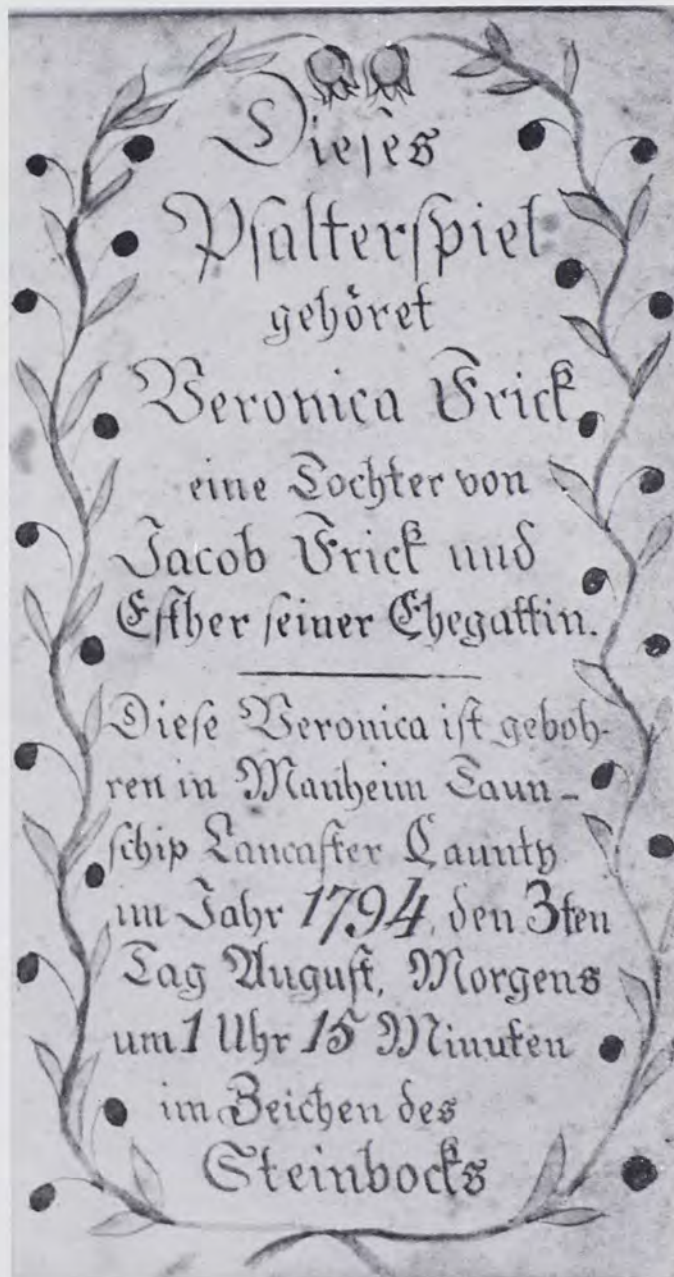 Dieses
Psalterspiel
gehöret
Veronica Frick
eine Tochter von
Jacob Frick und
Esther seiner Ehegattin.
Diese Veronica ist geboh-
ren in Manheim Taun-
schip Lancaster Caunty
im Jahr 1794, den 3ten
Tag August, Morgens
um 1 Uhr 15 Minuten
im Zeichen des
Steinbocks